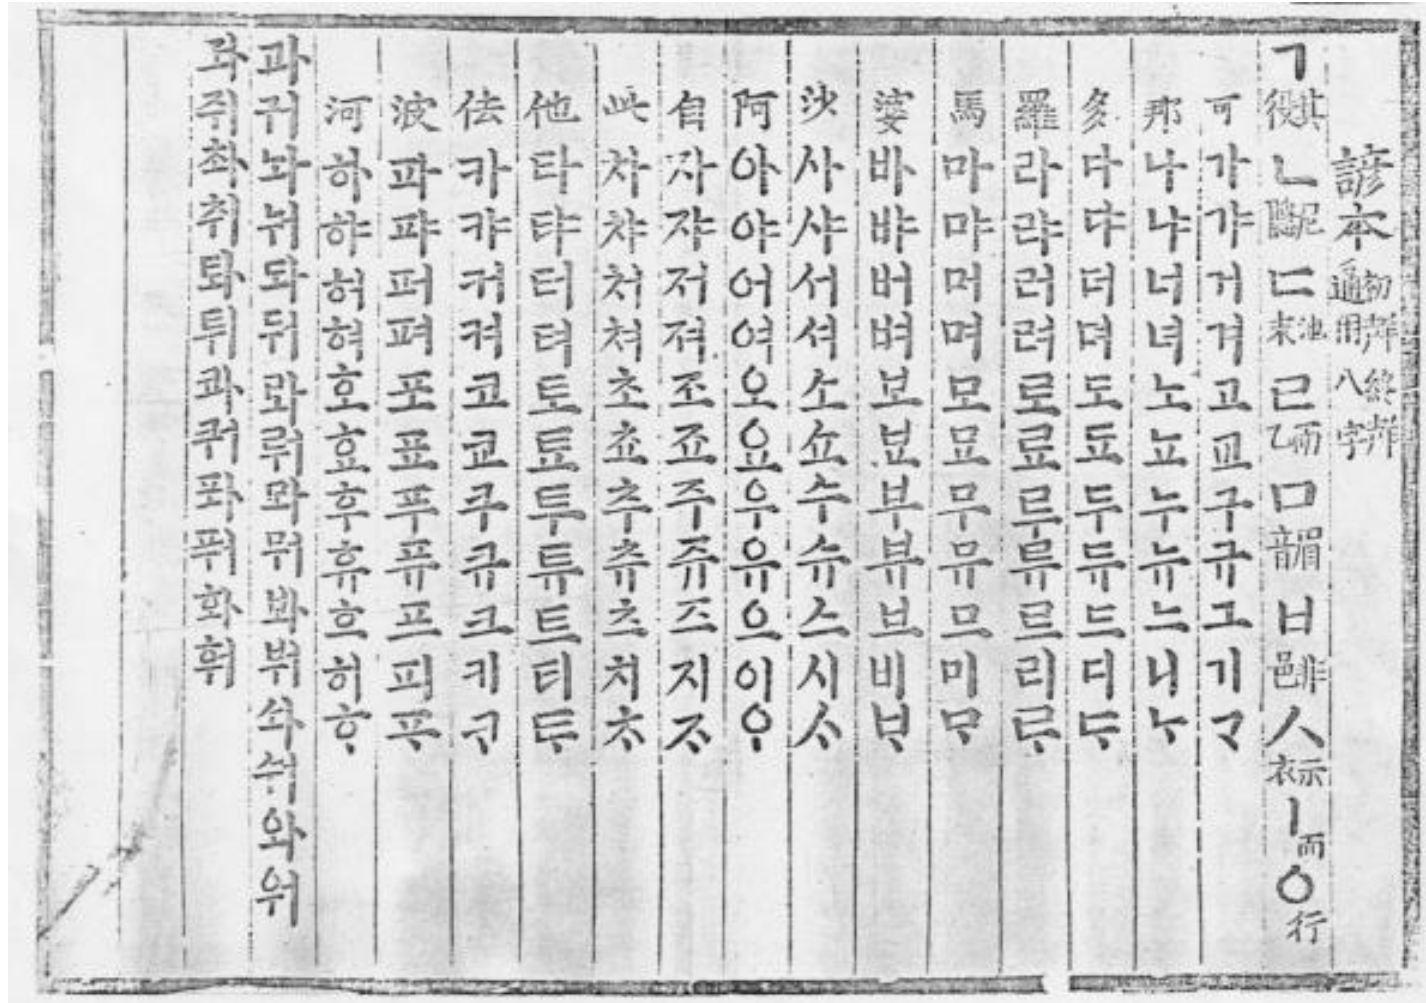 諺本 初聲終聲通用八字
ㄱ 其役 ㄴ 尼隱 ㄷ 池末 ㄹ 而乙 ㅁ 眉音 ㅂ 非邑 ㅅ 示衣 ㅣ 而 ㅇ 行
可 가 갸 거 겨 고 교 구 규 그 기 ᄀᆞ
那 나 냐 너 녀 노 뇨 누 뉴 느 니 ᄂᆞ
多 다 댜 더 뎌 도 됴 두 듀 드 디 ᄃᆞ
羅 라 랴 러 려 로 료 루 류 르 리 ᄅᆞ
馬 마 먀 머 며 모 묘 무 뮤 므 미 ᄆᆞ
婆 바 뱌 버 벼 보 뵤 부 뷰 브 비 ᄇᆞ
沙 사 샤 서 셔 소 쇼 수 슈 스 시 ᄉᆞ
阿 아 야 어 여 오 요 우 유 으 이 ᄋᆞ
自 자 쟈 저 져 조 죠 주 쥬 즈 지 ᄌᆞ
此 차 챠 처 쳐 초 쵸 추 츄 츠 치 ᄎᆞ
他 타 탸 터 텨 토 툐 투 튜 트 티 ᄐᆞ
佉 카 캬 커 켜 코 쿄 쿠 큐 크 키 ᄏᆞ
波 파 퍄 퍼 펴 포 표 푸 퓨 프 피 ᄑᆞ
河 하 햐 허 혀 호 효 후 휴 흐 히 ᄒᆞ
과 궈 놔 눠 돠 둬 롸 뤄 뫄 뭐 봐 붜 솨 숴 와 워
좌 줘 촤 춰 톼 퉈 콰 쿼 퐈 풔 화 훠